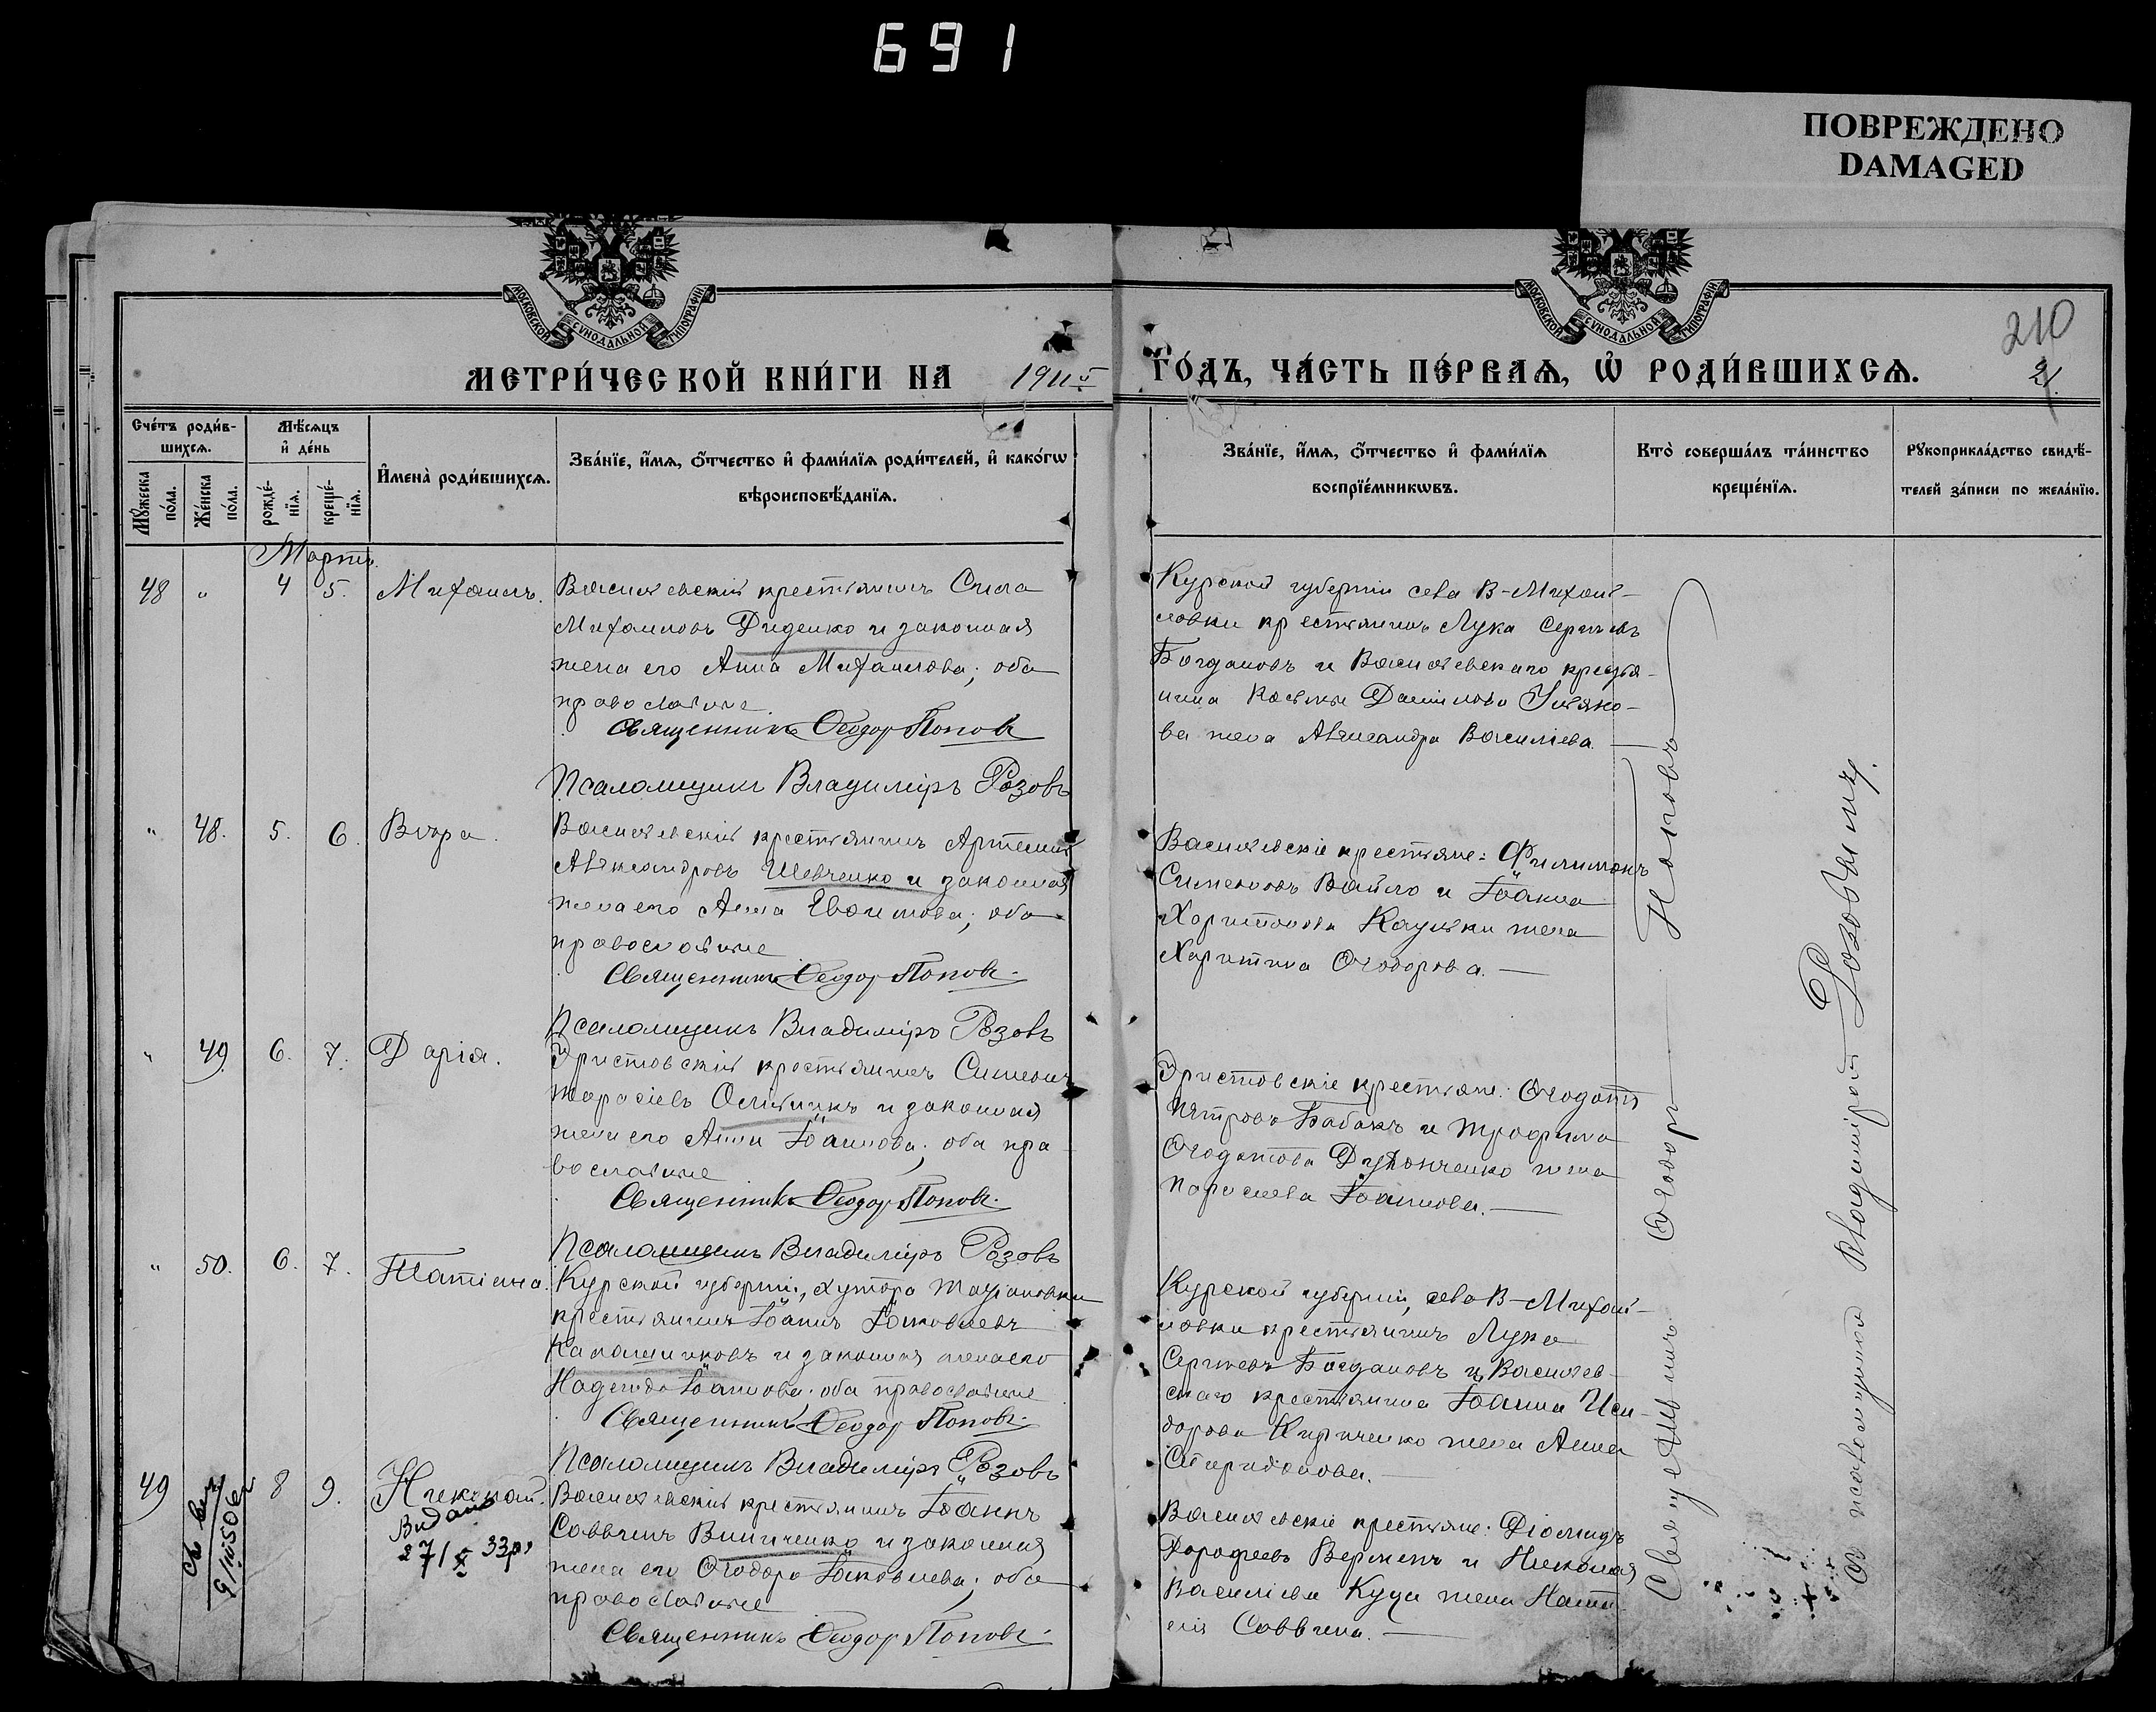 691
ПОВРЕЖДЕНО
DAMAGED
МОСКОВСКОЙ СѴНОДАЛЬНОЙ ТИПОГРАФІИ
МОСКОВСКОЙ СѴНОДАЛЬНОЙ ТИПОГРАФІИ
210
21
МЕТРИ́ЧЕСКОЙ КНИ́ГИ НА 1911й ГО́ДЪ, ЧА́СТЬ ПЕ́РВАѦ, Ѡ҆ РОДИ́ВШИХСѦ.
Сче́тъ роди́в-
шихсѧ.
Мꙋ́жеска по́ла.
Же́нска по́ла.
Мѣ́сѧцъ
и҆ де́нь
рожде́-
нїѧ.
креще́-
нїѧ.
И҆мена̀ роди́вшихсѧ.
Зва́нїе, и҆́мѧ, ѻ҆́тчество и҆ фами́лїѧ роди́телей, и҆ како́гѡ
вѣроисповѣ́данїѧ.
Зва́нїе, и҆́мѧ, ѻ҆́тчество и҆ фами́лїѧ
воспрїе́мникѡвъ.
Кто̀ соверша́лъ та́инство
креще́нїѧ.
Рꙋкоприкла́дство свидѣ́-
телей за́писи по жела́нїю.
Мартъ.
48 " 4 5. Михаилъ.
Васильевскій крестьянинъ Сила
Михаиловъ Диденко и законная
жена его Анна Михаилова; оба
православные
Священникъ Ѳеодоръ Поповъ
Псаломщикъ Владиміръ Розовъ
Курской губерніи села В-Михай-
ловки крестьянинъ Лука Сергѣевъ
Богдановъ и Васильевскаго крестья-
нина Косьмы Данилова
жена Александра Васильева.
" 48. 5. 6. Вѣра.
Васильевскій крестьянинъ Артемій
Александровъ Шевченко и законная
жена его Анна; оба
православные
Священникъ Ѳеодоръ Поповъ.
Псаломщикъ Владиміръ Розовъ
Васильевскіе крестьяне: Филимонъ
Симеоновъ Вайло и Іоанна
Харитонова жена
Харитина Ѳеодорова.
" 49. 6. 7. Дарія.
Эристовскій крестьянинъ Симеонъ
Тарасіевъ и законная
жена его Анна Іоаннова; оба пра-
вославные
Священникъ Ѳеодоръ Поповъ.
Псаломщикъ Владиміръ Розовъ
Эристовскіе крестьяне: Ѳеодотъ
Петровъ Бабакъ и Трофима
Ѳеодотова жена
Іоаннова.
" 50. 6. 7. Татіана.
Курской губерніи, хутора
крестьянинъ Іоаннъ Іаковлевъ
и законная жена его
Надежда Іоаннова; оба православные
Священникъ Ѳеодоръ Поповъ.
Псаломщикъ Владиміръ Розовъ
Курской губерніи, села В-Михай-
ловки крестьянинъ Лука
Сергѣевъ Богдановъ и Васильев-
скаго крестьянина Іоанна Иси-
дорова Кириченко жена Анна
Спиридонова.
49 8 9. Николай.
27/X 33р.
Васильевскій крестьянинъ Іоаннъ
Саввинъ и законная
жена его Ѳеодора Іаковлева; оба
православные
Священникъ Ѳеодоръ Поповъ
Васильевскіе крестьяне: Діомидъ
Дорофеевъ и Николая
Василіева жена
Саввина.
Священникъ Ѳеодоръ Поповъ
Съ псаломщикомъ Владиміромъ Розовымъ.